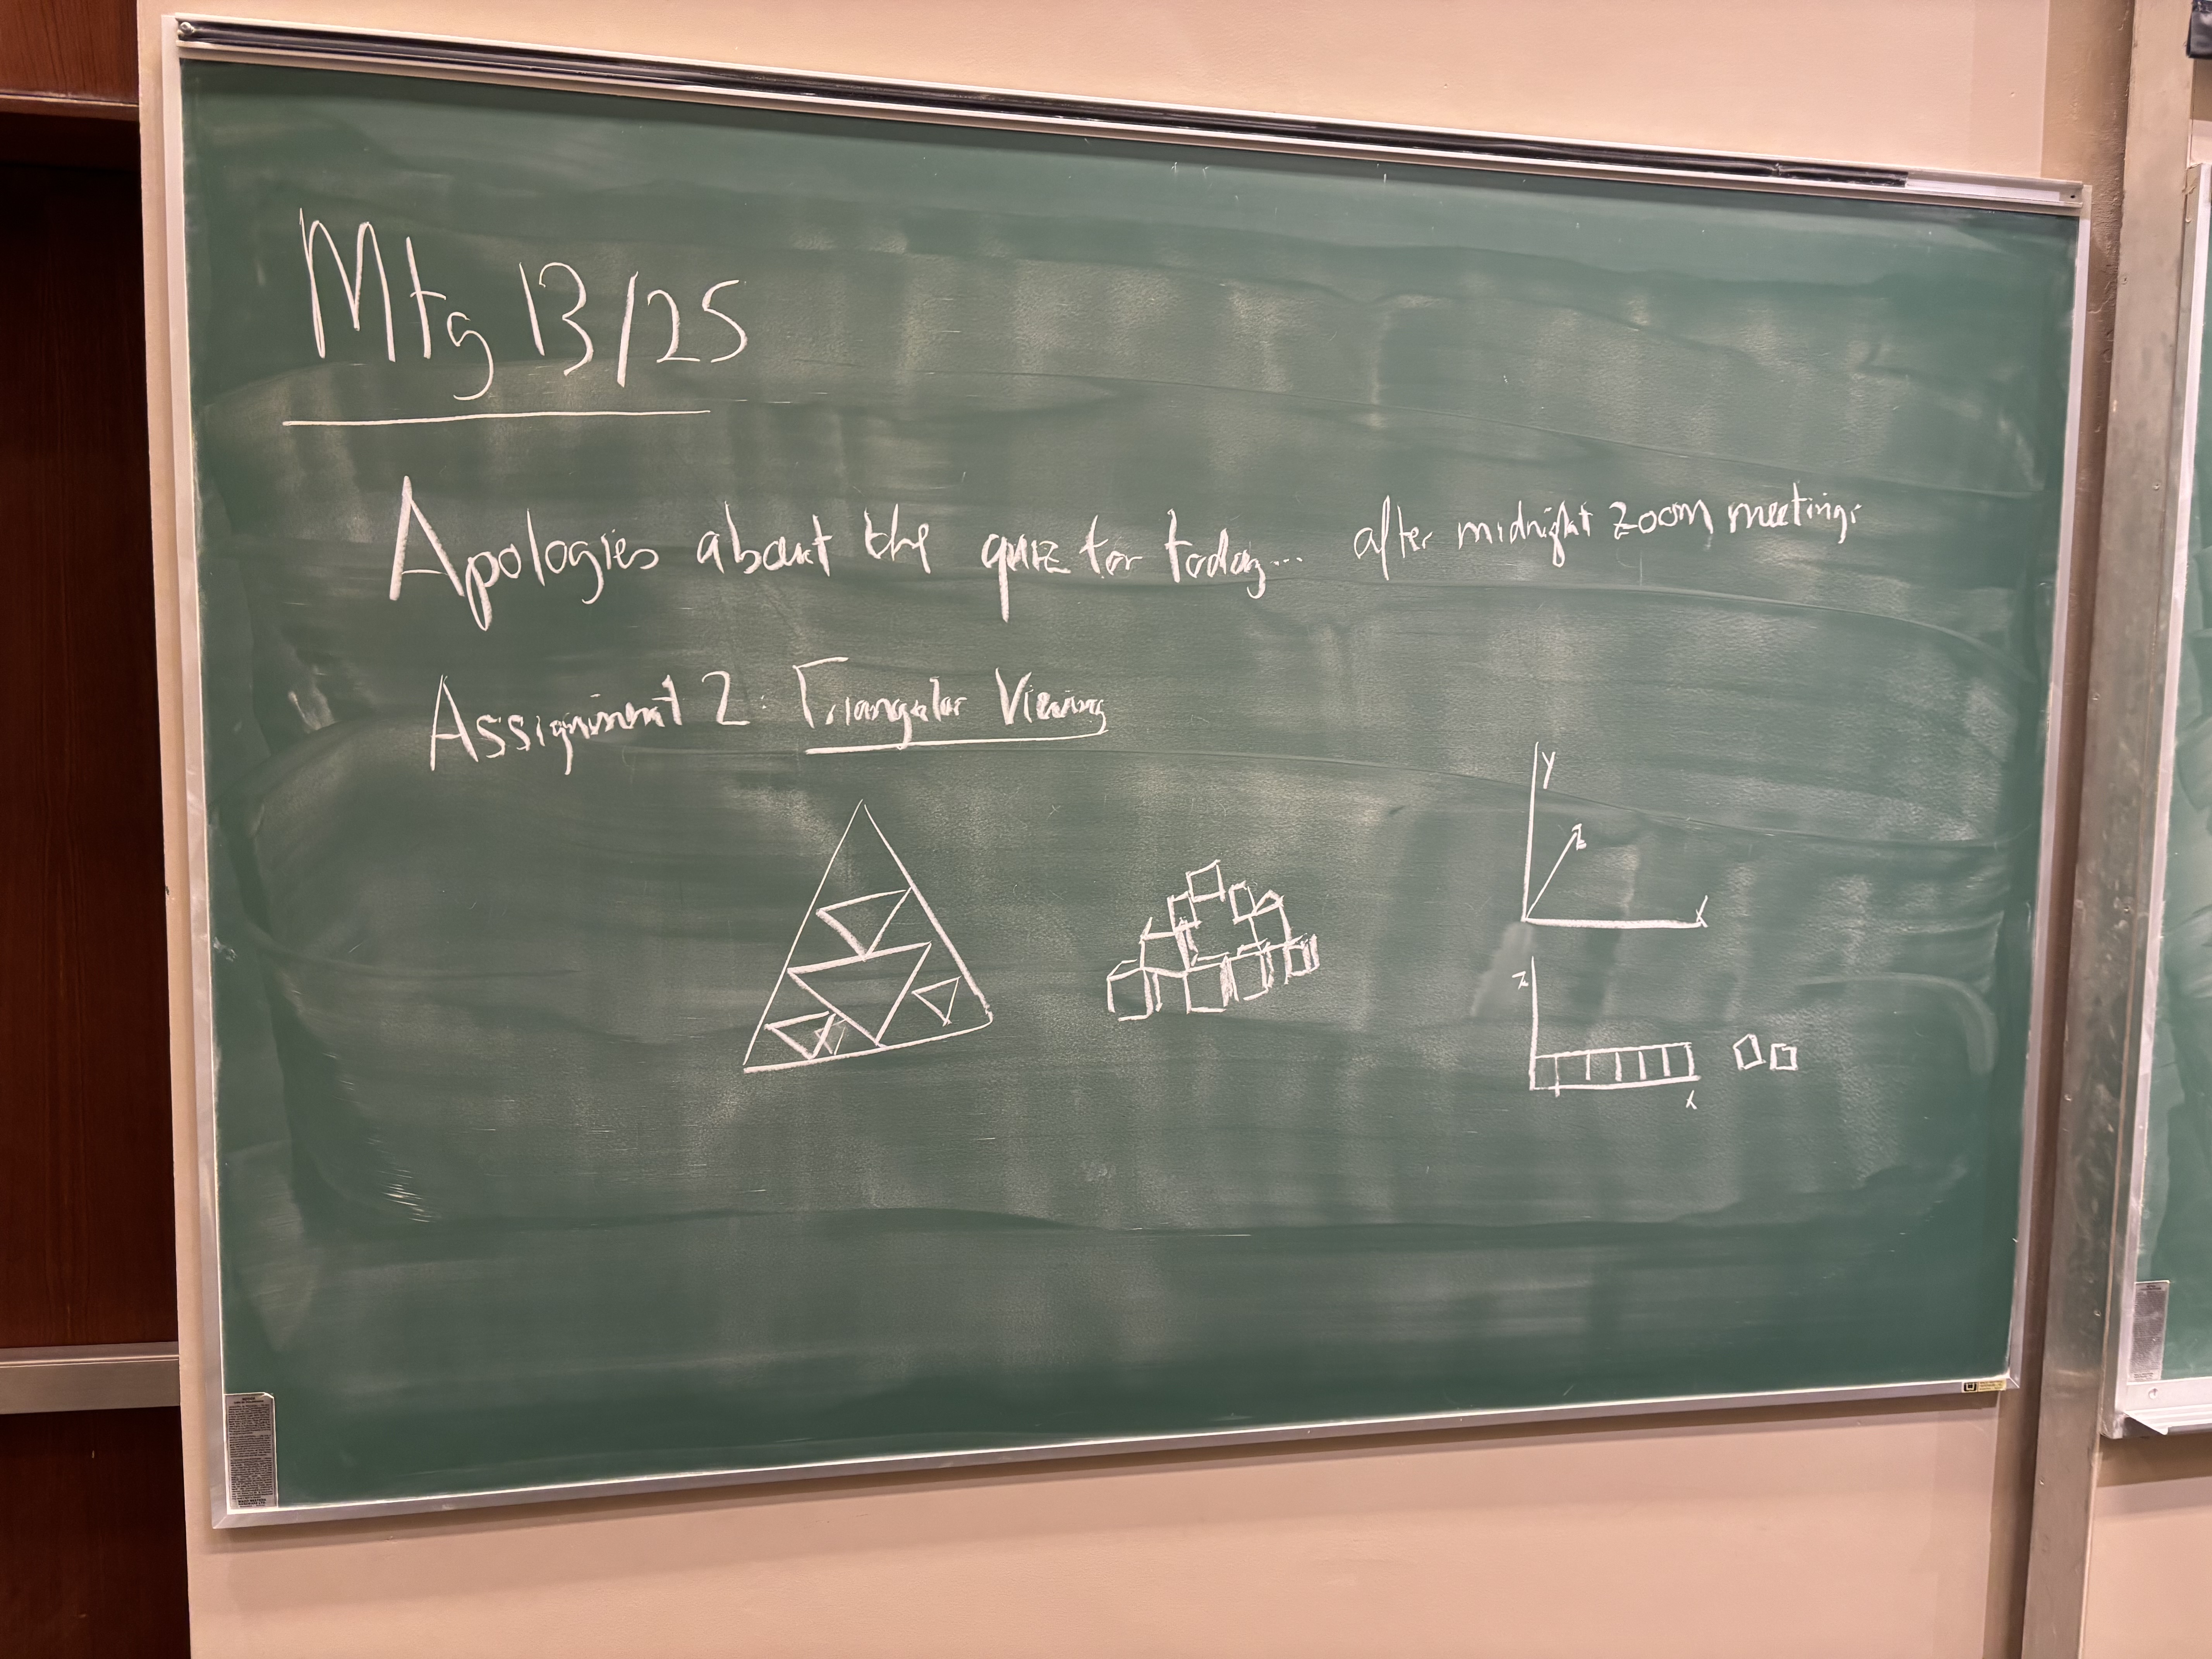 Mtg 13/25
Apologies about the quiz for today... after midnight zoom meeting.
Assignment 2: Triangular Viewing
y
z
x
z
x